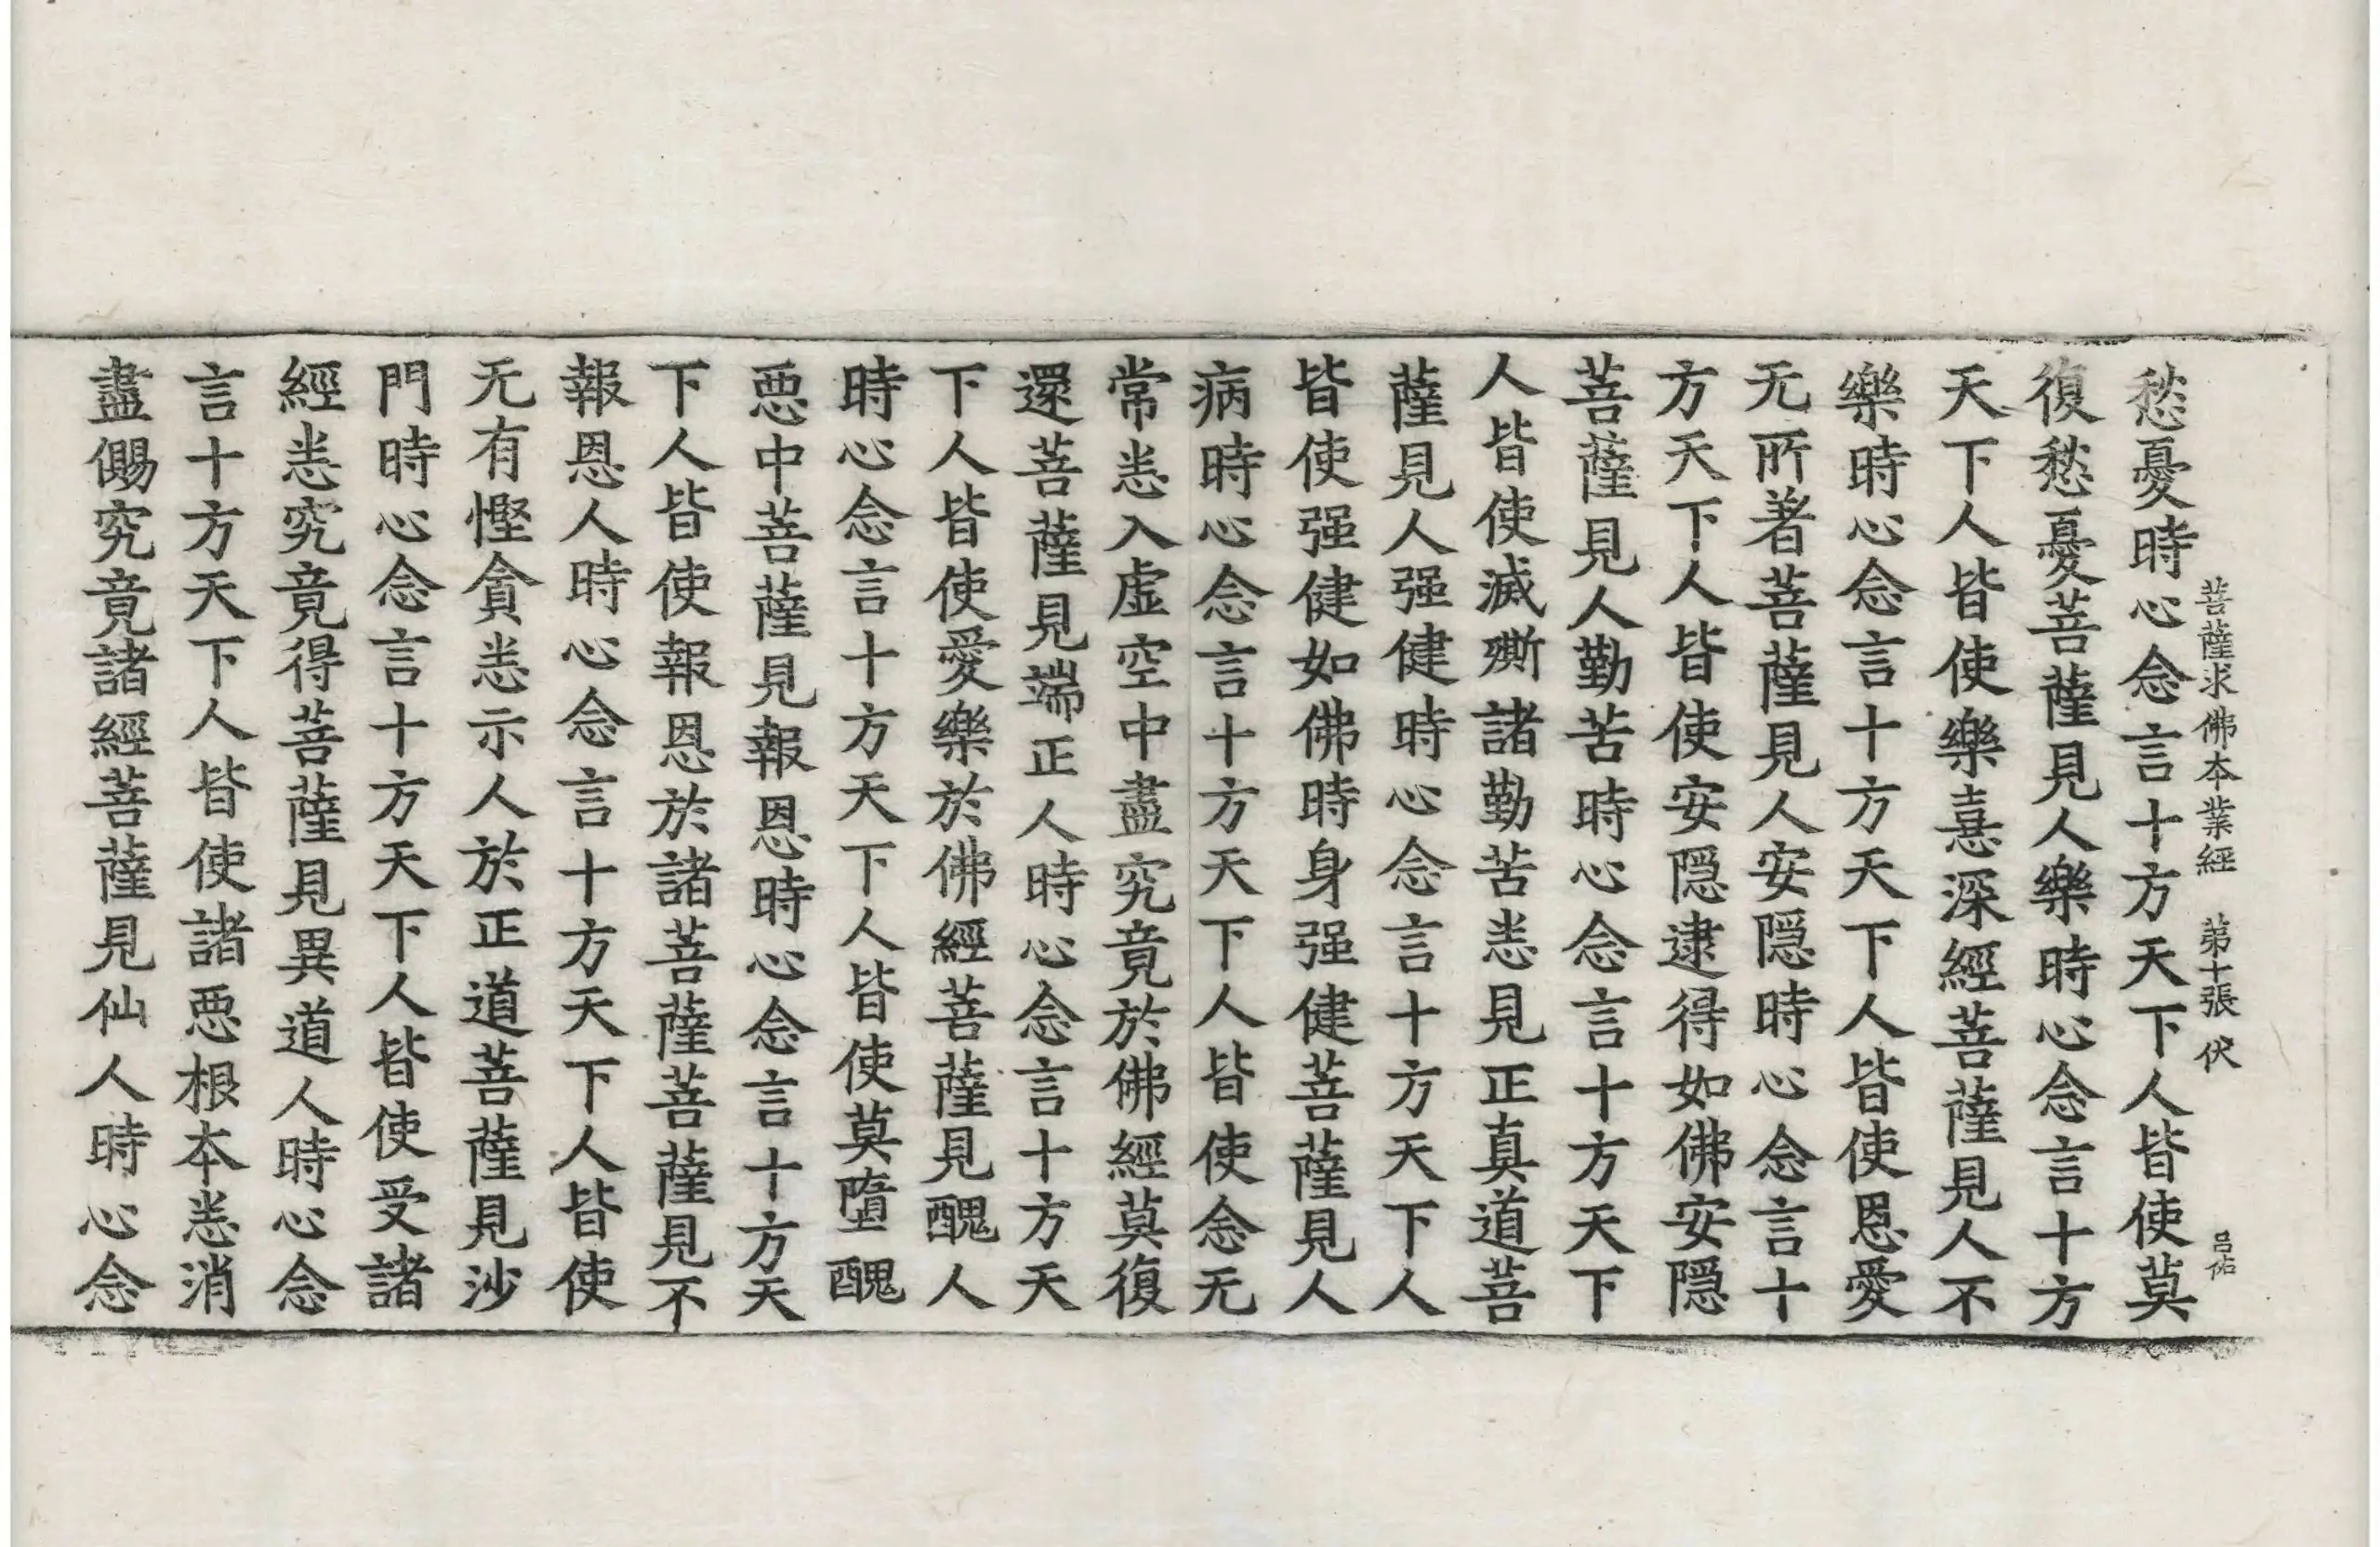 菩薩求佛本業經　第十張　伏
呂佑
愁憂時心念言十方天下人皆使莫
復愁憂菩薩見人樂時心念言十方
天下人皆使樂憙深經菩薩見人不
樂時心念言十方天下人皆使恩愛
无所著菩薩見人安隱時心念言十
方天下人皆使安隱逮得如佛安隱
菩薩見人勤苦時心念言十方天下
人皆使滅㫁諸勤苦悉見正真道菩
薩見人强健時心念言十方天下人
皆使强健如佛時身强健菩薩見人
病時心念言十方天下人皆使念无
常悉入虛空中盡究竟於佛經莫復
還菩薩見端正人時心念言十方天
下人皆使愛樂於佛經菩薩見醜人
時心念言十方天下人皆使莫墮醜
惡中菩薩見報恩時心念言十方天
下人皆使報恩於諸菩薩菩薩見不
報恩人時心念言十方天下人皆使
无有慳貪悉示人於正道菩薩見沙
門時心念言十方天下人皆使受諸
經悉究竟得菩薩見異道人時心念
言十方天下人皆使諸惡根本悉消
盡儩究竟諸經菩薩見仙人時心念